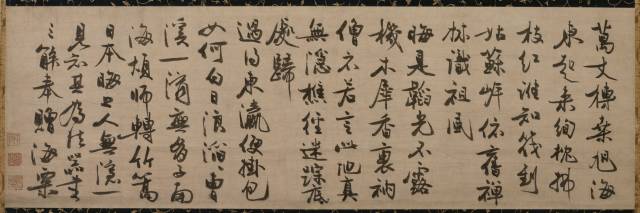 萬丈榑桑旭海
東起來絢枕拂
枝紅誰知筏到
姑蘇岸依舊禪
林識祖風
晦是韜光不露
機木犀香裏衲
僧衣若言此地真
無隱樵徑迷蹤底
處歸
過得東瀛便掛包
如何白日浪滔曹
溪一滴無多子兩
海煩師轉竹篙
日本晦上人無隱一
見知其為法器書
三絶奉贈海粟